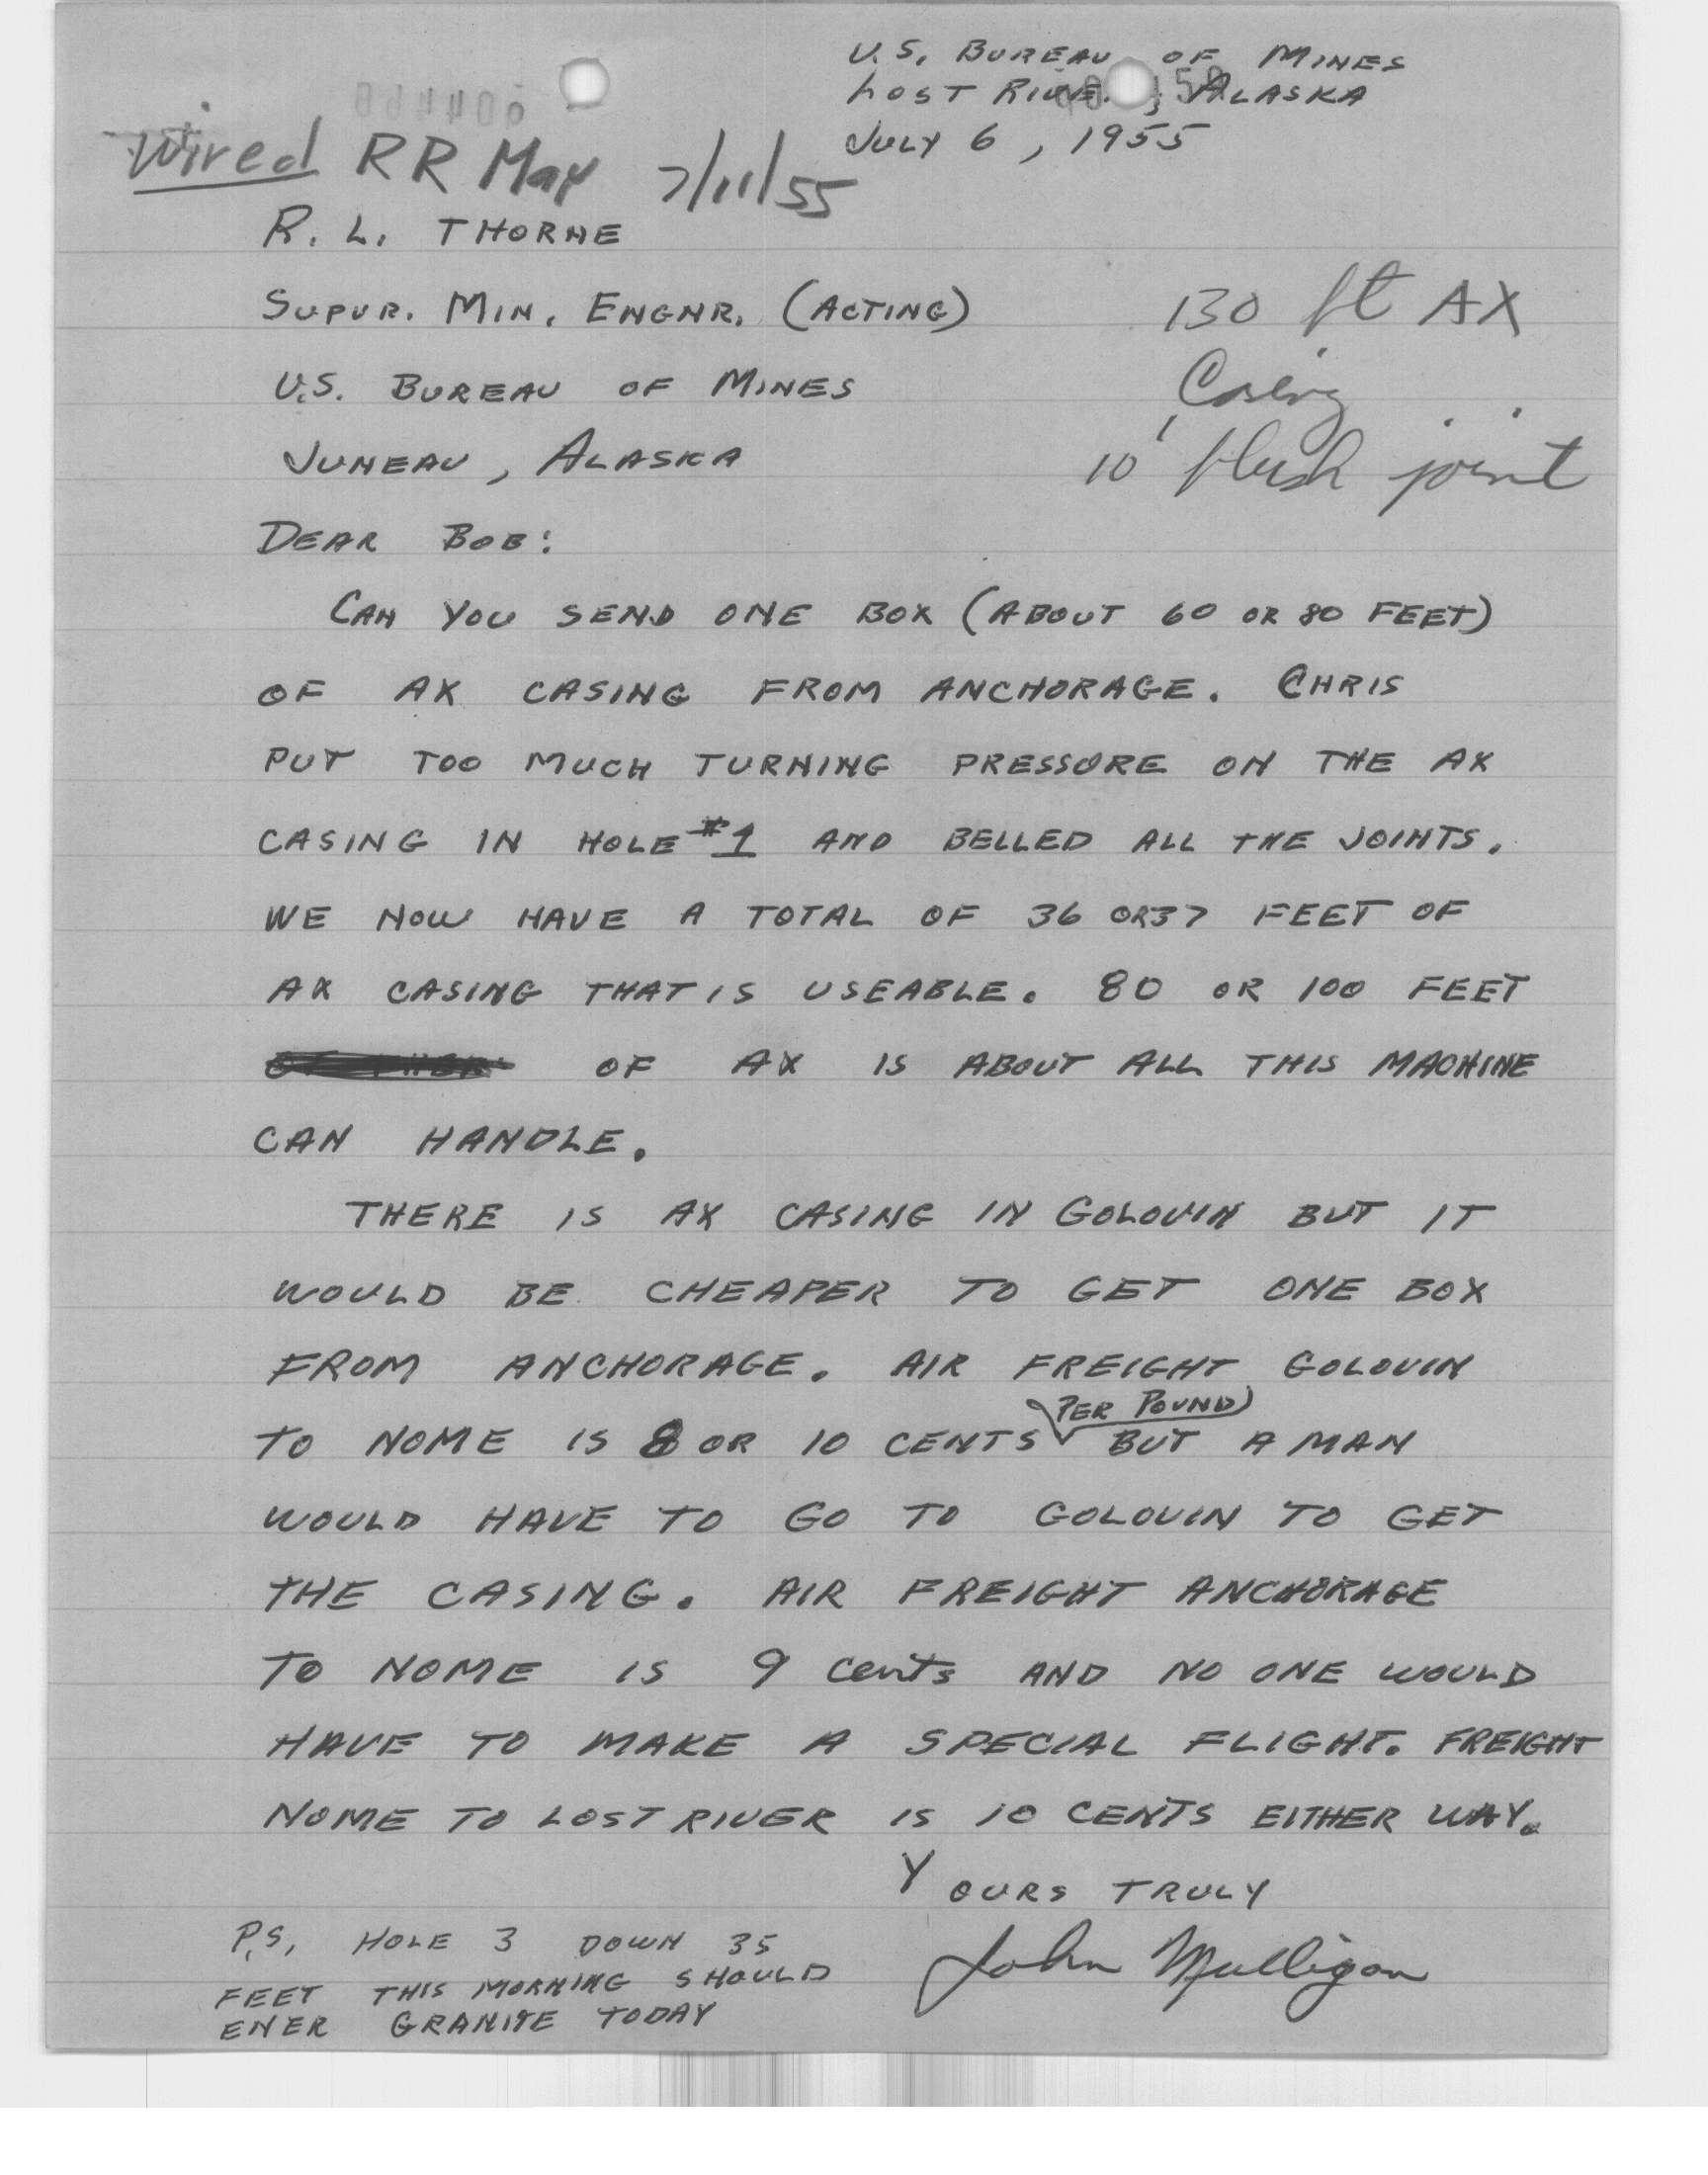 U.S. BUREAU OF MINES
LOST RIVE , ALASKA
JULY 6, 1955
Wired RR May 7/11/55
R. L. THORNE
SUPVR. MIN. ENGNR. (ACTING)
130 ft AX
U.S. BUREAU OF MINES
Casing
JUNEAU, ALASKA
10' flush joint
DEAR BOB:
CAN YOU SEND ONE BOX (ABOUT 60 OR 80 FEET)
OF AX CASING FROM ANCHORAGE. CHRIS
PUT TOO MUCH TURNING PRESSURE ON THE AX
CASING IN HOLE #1 AND BELLED ALL THE JOINTS.
WE NOW HAVE A TOTAL OF 36 OR 37 FEET OF
AX CASING THAT IS USEABLE. 80 OR 100 FEET
OF AX IS ABOUT ALL THIS MACHINE
CAN HANDLE.
THERE IS AX CASING IN GOLOVIN BUT IT
WOULD BE CHEAPER TO GET ONE BOX
FROM ANCHORAGE. AIR FREIGHT GOLOVIN
TO NOME IS 8 OR 10 CENTS PER POUND BUT A MAN
WOULD HAVE TO GO TO GOLOVIN TO GET
THE CASING. AIR FREIGHT ANCHORAGE
TO NOME IS 9 cents AND NO ONE WOULD
HAVE TO MAKE A SPECIAL FLIGHT. FREIGHT
NOME TO LOST RIVER IS 10 CENTS EITHER WAY.
YOURS TRULY
John Mulligan
P.S. HOLE 3 DOWN 35
FEET THIS MORNING SHOULD
ENER GRANITE TODAY